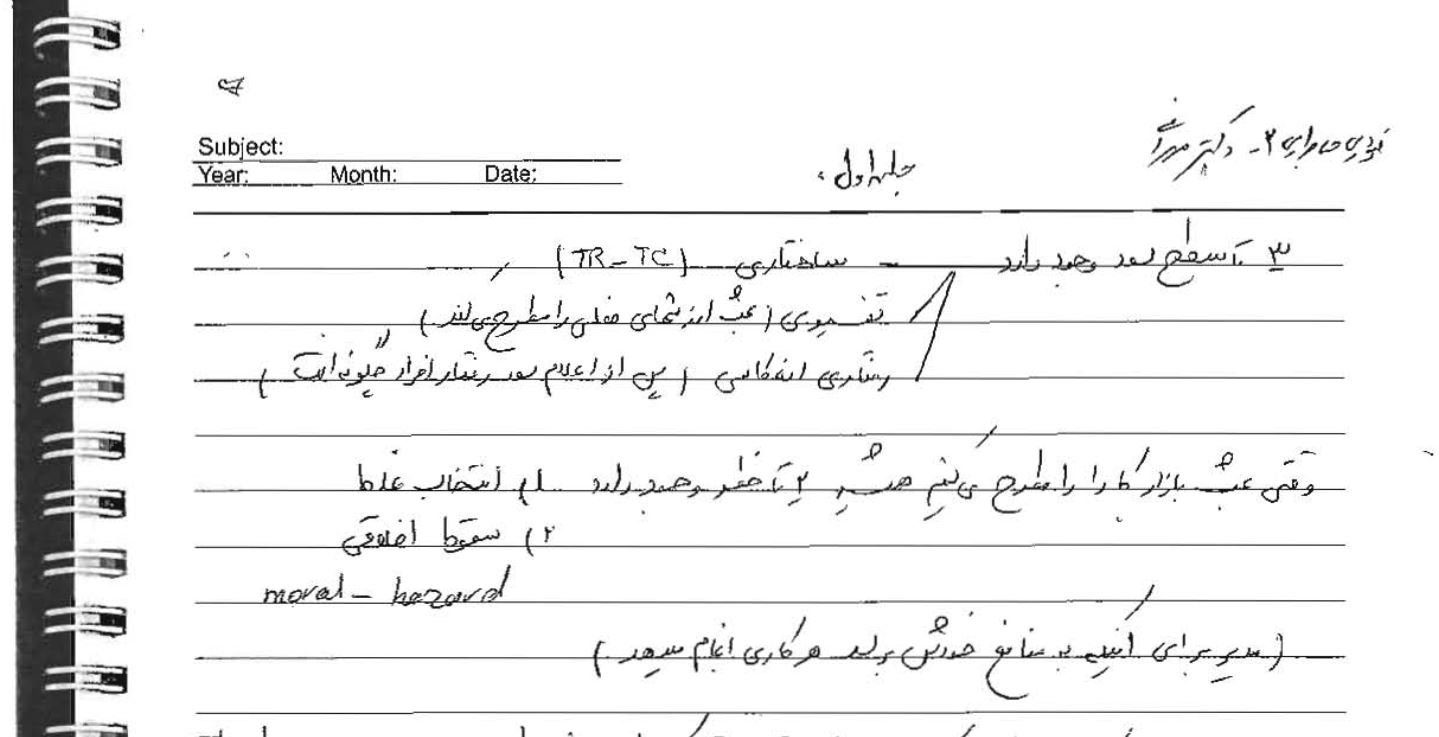 تئوری حسابداری ۲- دکتر
Subject:
Year: Month: Date:
جلسه اول:
۳ تا سطح سود وجود دارد - ساختاری (TR-TC)
تفسیری (بحث ارزشهای فعلی را مطرح می‌کند)
رفتاری انعکاسی (پس از اعلام سود رفتار افراد چگونه است)
وقتی بحث بازار کارا را مطرح می‌کنیم همیشه ۲ تا خطر وجود دارد ۱) انتخاب غلط
۲) سقوط اخلاقی
moral-hazard
(مدیر برای اینکه به منافع خودش برسد هر کاری انجام میدهد)